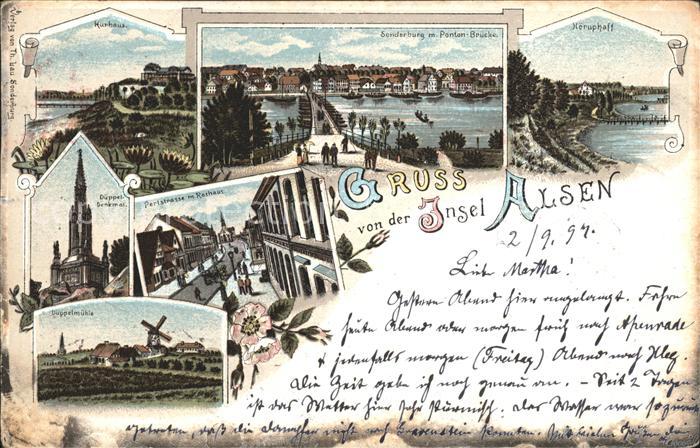 Verlag von Th. Lau Sonderburg
Kurhaus.
Sonderburg m. Ponton-Brücke.
Höruphaff
Düppel Denkmal.
Perlstrasse m. Rathaus.
Düppelmühle
GRUSS
von der Insel ALSEN
2/9. 97.
Liebe Martha!
Gestern Abend hier angelangt. Fahre
heute Abend oder morgen früh nach Apenrade
& jedenfalls morgen (Freitag) Abend nach
Die Zeit gebe ich noch genau an. – Seit 2 Tagen
ist das Wetter hier sehr stürmisch. Das Wasser war so
getreten, daß die Dampfer nicht nach konnten. Grüßen